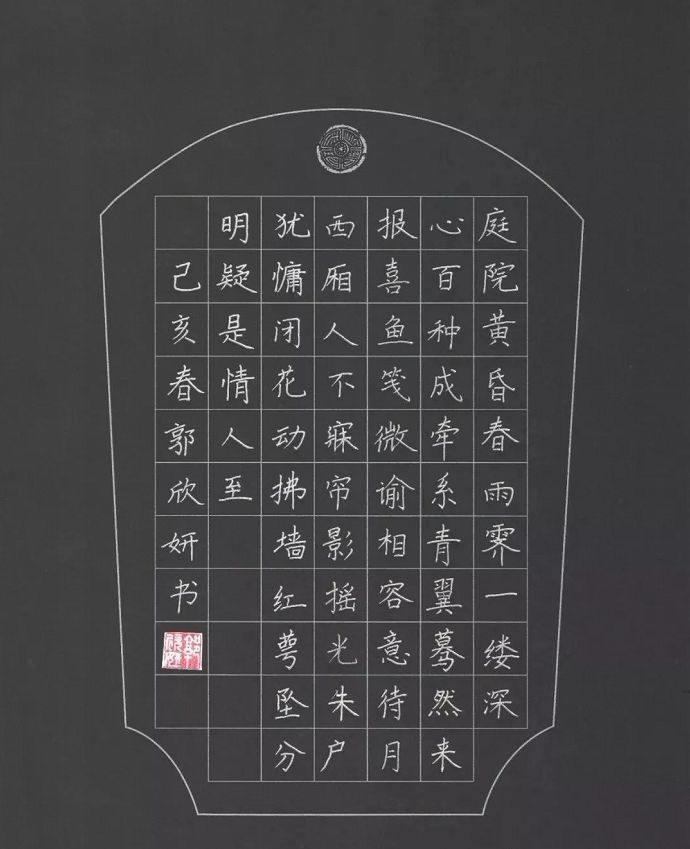 庭院黄昏春雨霁一缕深
心百种成牵系青翼蓦然来
报喜鱼笺微谕相容意待月
西厢人不寐帘影摇光朱户
犹慵闭花动拂墙红萼坠分
明疑是情人至
己亥春郭欣妍书
郭欣妍